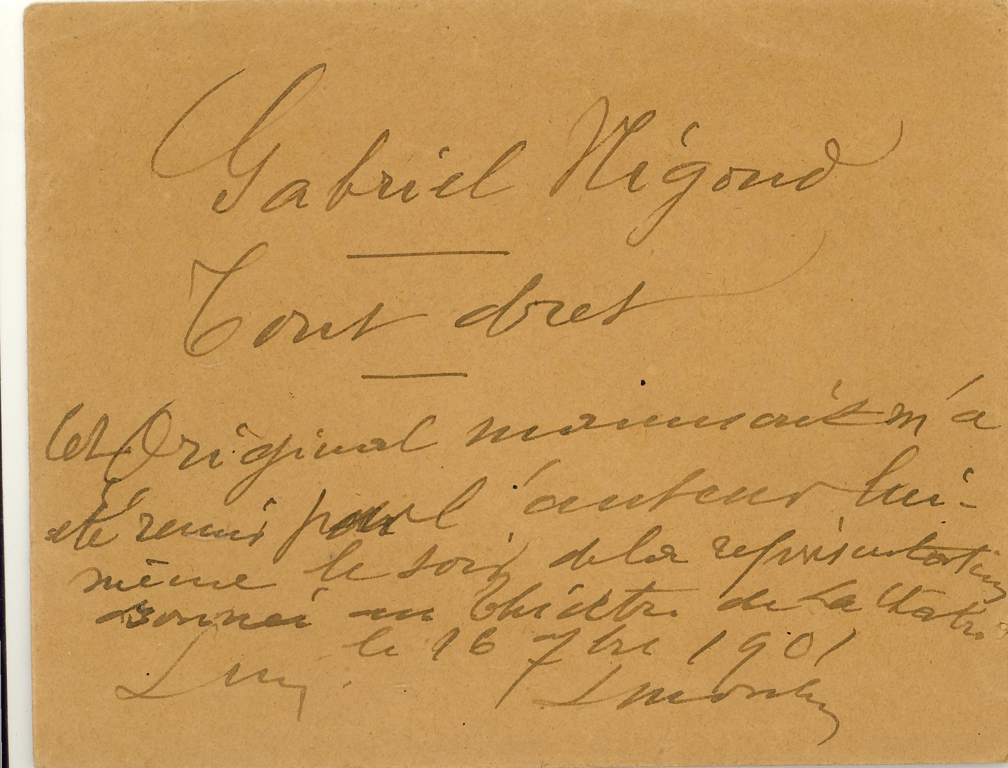 Gabriel Nigond
Tout dret
Cet Original manuscrit m'a
été remis par l'auteur lui-
même le soir de la représentation
donnée au Théâtre de La Châtre
le 16 7bre 1901